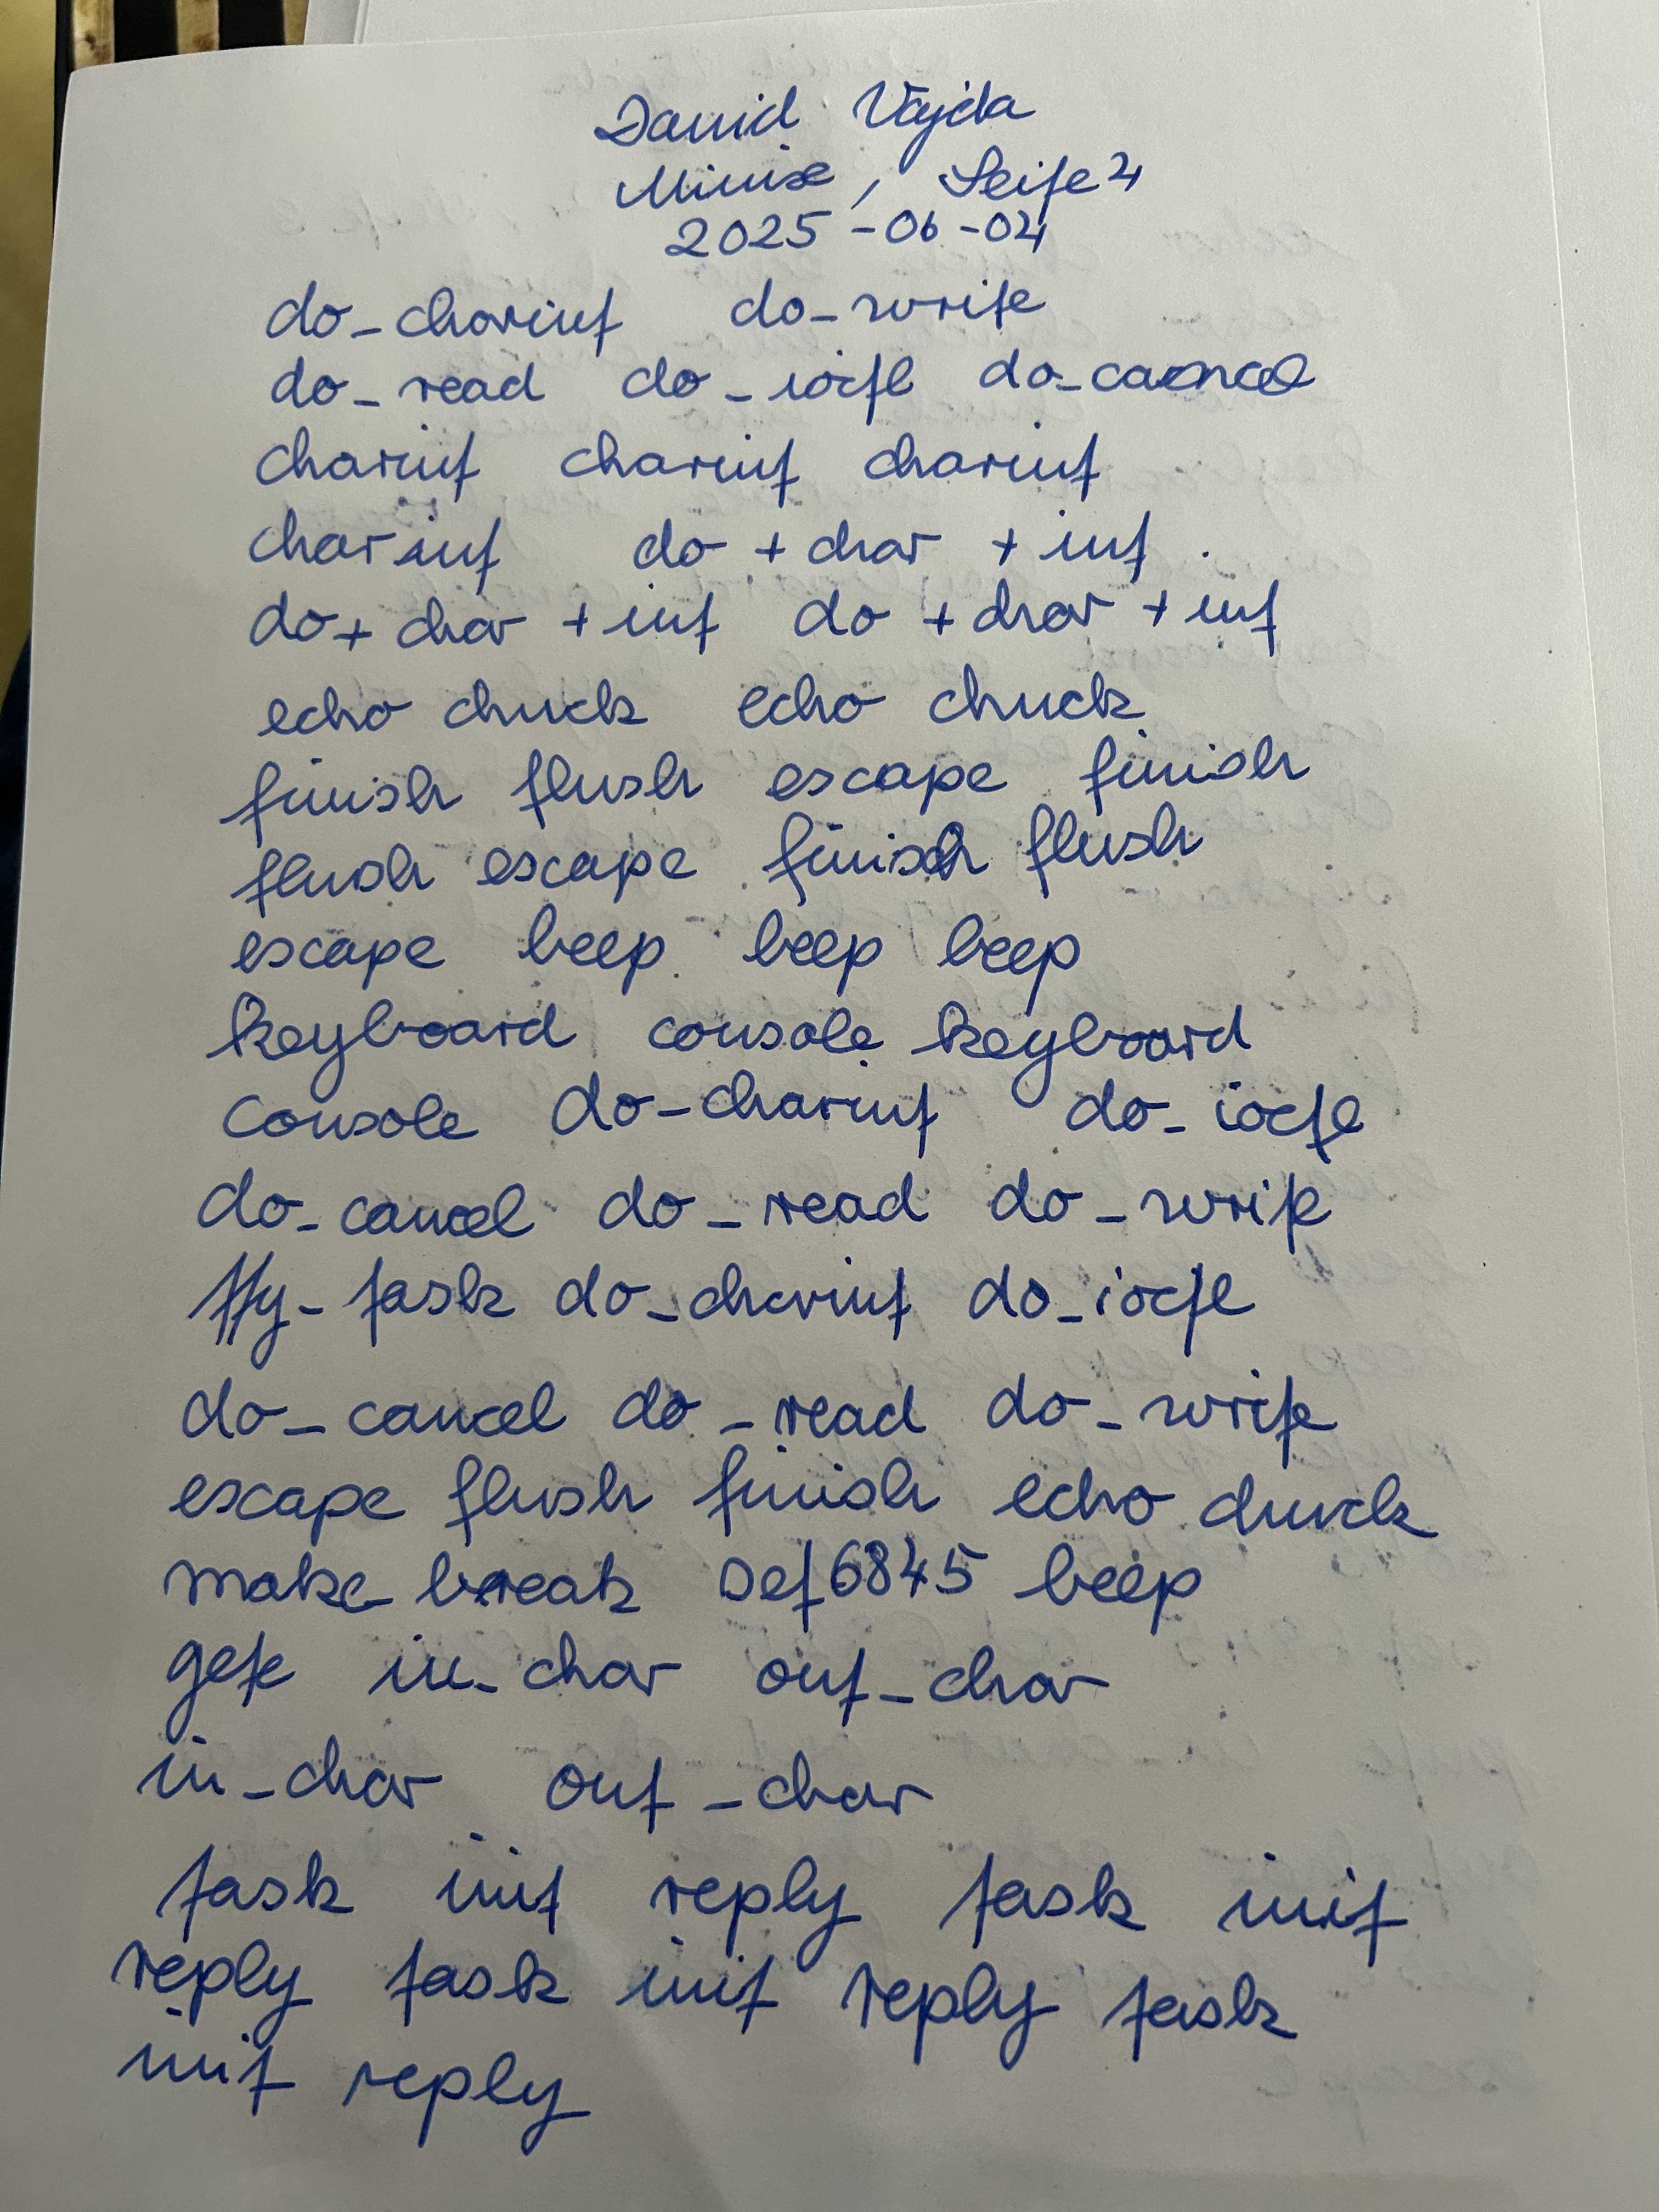 David Vajda
Minix, Seite 4
2025-06-04
do_charint do_write
do_read do_ioctl do_cancel
charint charint charint
charint do + char + int
do + char + int do + char + int
echo chuck echo chuck
finish flush escape finish
flush escape finish flush
escape beep beep beep
keyboard console keyboard
console do_charint do_ioctl
do_cancel do_read do_write
tty_task do_charint do_ioctl
do_cancel do_read do_write
escape flush finish echo chuck
make break set6845 beep
gete in_char out_char
in_char out_char
task init reply task init
reply task init reply task
init reply